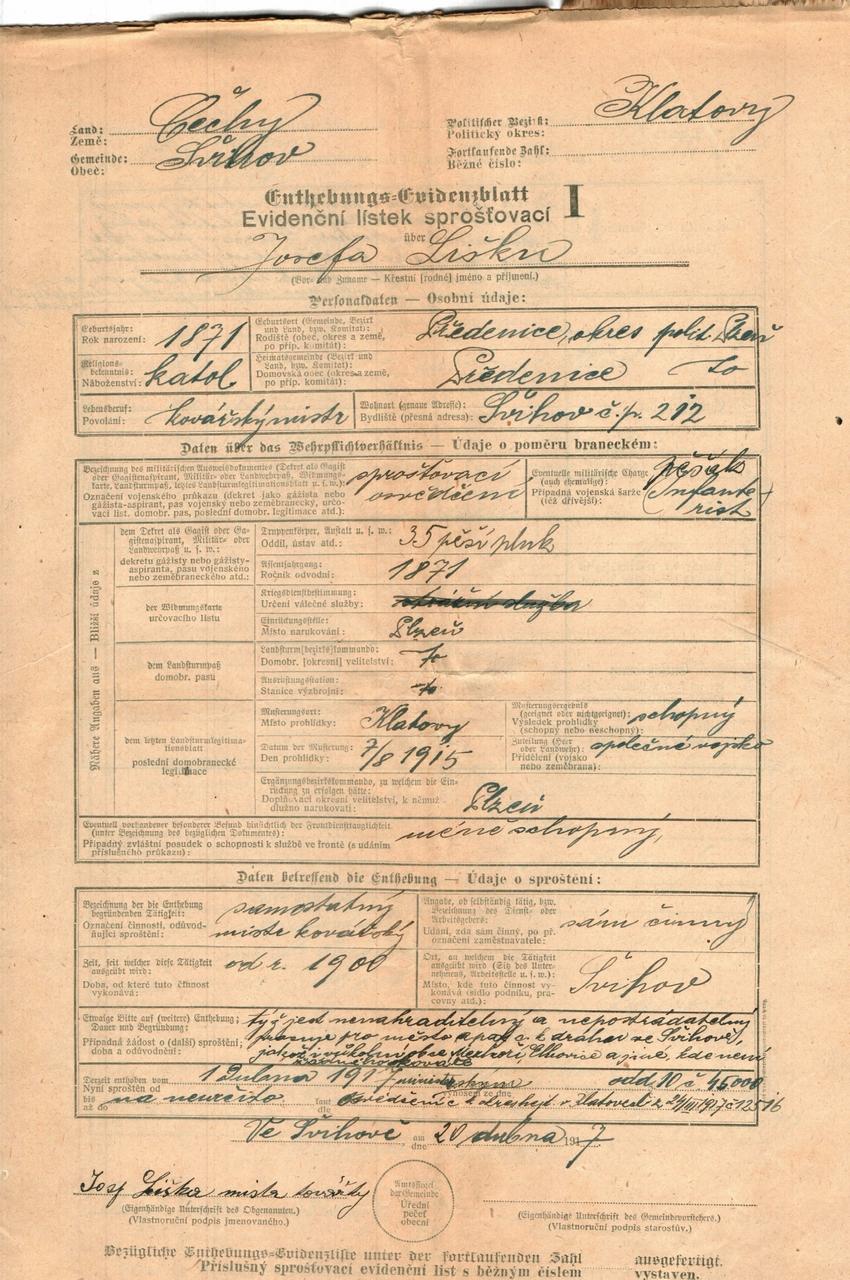 Land: Čechy
Země:
Politischer Bezirk: Klatovy
Politický okres:
Gemeinde: Švihov
Obec:
Fortlaufende Zahl:
Běžné číslo:
Enthebungs-Evidenzblatt I
Evidenční lístek sprošťovací
über
Josefa Lišku
(Vor- und Zuname — Křestní [rodné] jméno a příjmení.)
Personaldaten — Osobní údaje:
Geburtsjahr:
Rok narození: 1871
Geburtsort (Gemeinde, Bezirk
und Land, bzw. Komitat):
Rodiště (obec, okres a země,
po příp. komitát):
Předenice, okres polit. Plzeň
Religions-
bekenntnis:
Náboženství: katol.
Heimatsgemeinde (Bezirk und
Land, bzw. Komitat):
Domovská obec (okres a země,
po příp. komitát):
Předenice to
Lebensberuf:
Povolání: kovářský mistr
Wohnort (genaue Adresse):
Bydliště (přesná adresa): Švihov č. p. 212
Daten über das Wehrpflichtverhältnis — Údaje o poměru braneckém:
Bezeichnung des militärischen Ausweisdokumentes (Dekret als Gagist
oder Gagistaspirant, Militär- oder Landwehrpaß, Widmungs-
karte, Landsturmpaß, letztes Landsturmlegitimationsblatt u. s. w.):
Označení vojenského průkazu (dekret jako gážista nebo
gážista-aspirant, pas vojenský nebo zeměbranecký, určo-
vací list. domobr. pas, poslední domobr. legitimace atd.):
sprošťovací
osvědčení
Eventuelle militärische Charge
(auch ehemalige):
Případná vojenská šarže
(též dřívější):
pěšák
(Infante-
rist
Nähere Angaben aus — Bližší údaje z
dem Dekret als Gagist oder Ga-
gistenaspirant, Militär- oder
Landwehrpaß u. s. w.:
dekretu gážisty nebo gážisty-
aspiranta, pasu vojenského
nebo zeměbraneckého atd.:
Truppenkörper, Anstalt u. s. w.:
Oddíl, ústav atd.: 35 pěší pluk
Assentjahrgang:
Ročník odvodní: 1871
der Widmungskarte
určovacího listu
Kriegsdienstbestimmung:
Určení válečné služby:
Einrückungsstelle:
Místo narukování: Plzeň
dem Landsturmpaß
domobr. pasu
Landsturm[bezirks]kommando:
Domobr. [okresní] velitelství: to
Ausrüstungsstation:
Stanice výzbrojní: to
dem letzten Landsturmlegitima-
tionsblatt
poslední domobranecké
legitimace
Musterungsort:
Místo prohlídky: Klatovy
Musterungsergebnis
(geeignet oder nichtgeeignet):
Výsledek prohlídky
(schopný nebo neschopný): schopný
Datum der Musterung:
Den prohlídky: 7/8 1915
Zuteilung (Heer
oder Landwehr):
Přidělení (vojsko
nebo zeměbrana):
společné vojsko
Ergänzungsbezirkskommando, zu welchem die Ein-
rückung zu erfolgen hätte:
Doplňovací okresní velitelství, k němuž
dlužno narukovati:
Plzeň
Eventuell vorhandener besonderer Befund hinsichtlich der Frontdiensttauglichkeit
(unter Bezeichnung des bezüglichen Dokumentes):
Případný zvláštní posudek o schopnosti k službě ve frontě (s udáním
příslušného průkazu):
méně schopný,
Daten betreffend die Enthebung — Údaje o sproštění:
Bezeichnung der die Enthebung
begründenden Tätigkeit:
Označení činnosti, odůvod-
ňující sproštění:
samostatný
mistr kovářský
Angabe, ob selbständig tätig, bzw.
Bezeichnung des Dienst- oder
Arbeitsgebers:
Udání, zda sám činný, po př.
označení zaměstnavatele:
sám činný
Zeit, seit welcher diese Tätigkeit
ausgeübt wird:
Doba, od které tuto činnost
vykonává:
od r. 1900
Ort, an welchem die Tätigkeit
ausgeübt wird (Sitz des Unter-
nehmens, Arbeitsstelle u. s. w.):
Místo, kde tuto činnost vy-
konává (sídlo podniku, pra-
covny atd.):
Švihov
Etwaige Bitte auf (weitere) Enthebung;
Dauer und Begründung:
Případná žádost o (další) sproštění;
doba a odůvodnění:
týž jest nenahraditelný a nepostrádatelný
pracuje pro město
ve Švihově,
a jiné, kde není
Derzeit enthoben vom
Nyní sproštěn od 1 dubna 1917
odd 10 č 45000
bis
až do na neurčito
laut
dle
výnosem ze dne
Ve Švihově am
dne 20 dubna 1917
Josef Liška mistr kovářský
(Eigenhändige Unterschrift des Obgenannten.)
(Vlastnoruční podpis jmenovaného.)
Amtssiegel
der Gemeinde
Úřední
pečeť
obecní
(Eigenhändige Unterschrift des Gemeindevorstehers.)
(Vlastnoruční podpis starostův.)
Bezügliche Enthebungs-Evidenzliste unter der fortlaufenden Zahl ausgefertigt.
Příslušný sprošťovací evidenční list s běžným číslem vystaven.